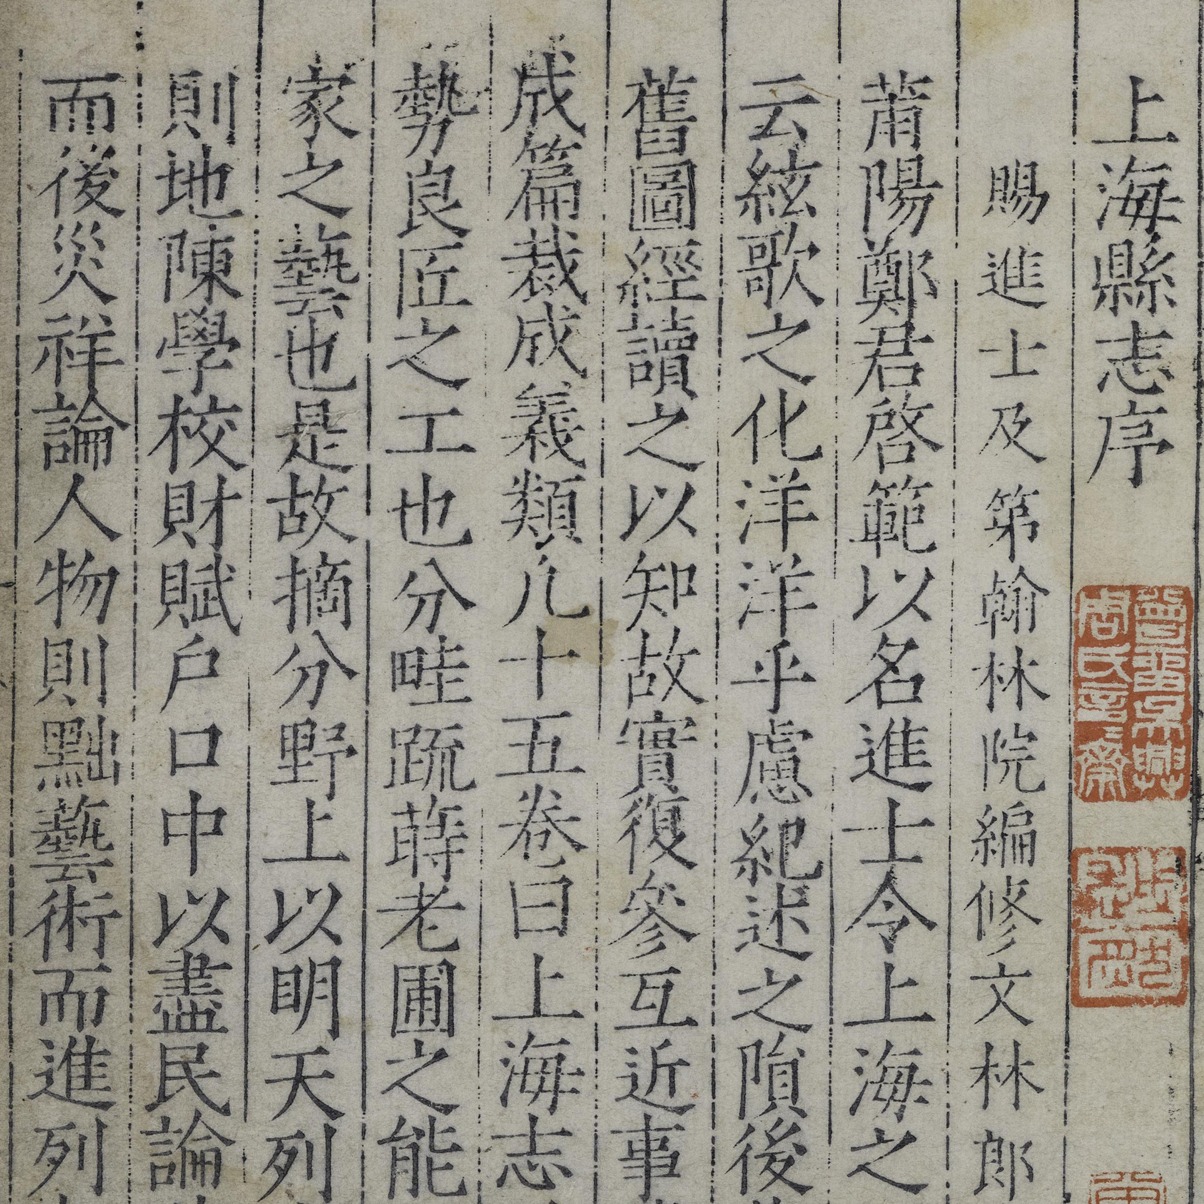 上海縣志序
賜進士及第翰林院編修文林郎
莆陽鄭君啓範以名進士令上海之
云絃歌之化洋洋乎慮紀述之隕後
舊圖經讀之以知故實復參互近事
成篇裁成義類凡十五卷曰上海志
勢良匠之工也分畦疏蒔老圃之能
家之藝也是故摘分野上以明天列
則地陳學校財賦户口中以盡民論
而後災祥論人物則黜藝術而進列